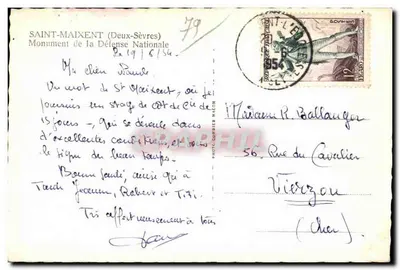 SAINT-MAIXENT (Deux-Sèvres)
Monument de la Défense Nationale
79
Le 19/6/54
Ma chère
Un mot de St Maixent, où je
poursuis un stage de de
15 jours, qui se déroule dans
d'excellentes conditions, et sous
le signe du beau temps.
Bonne santé, ainsi qu'à
Robert et Titi.
Très affectueusement à tous
1954
12F
Madame R. Ballanger
56, Rue du Cavalier
Vierzon
(Cher)